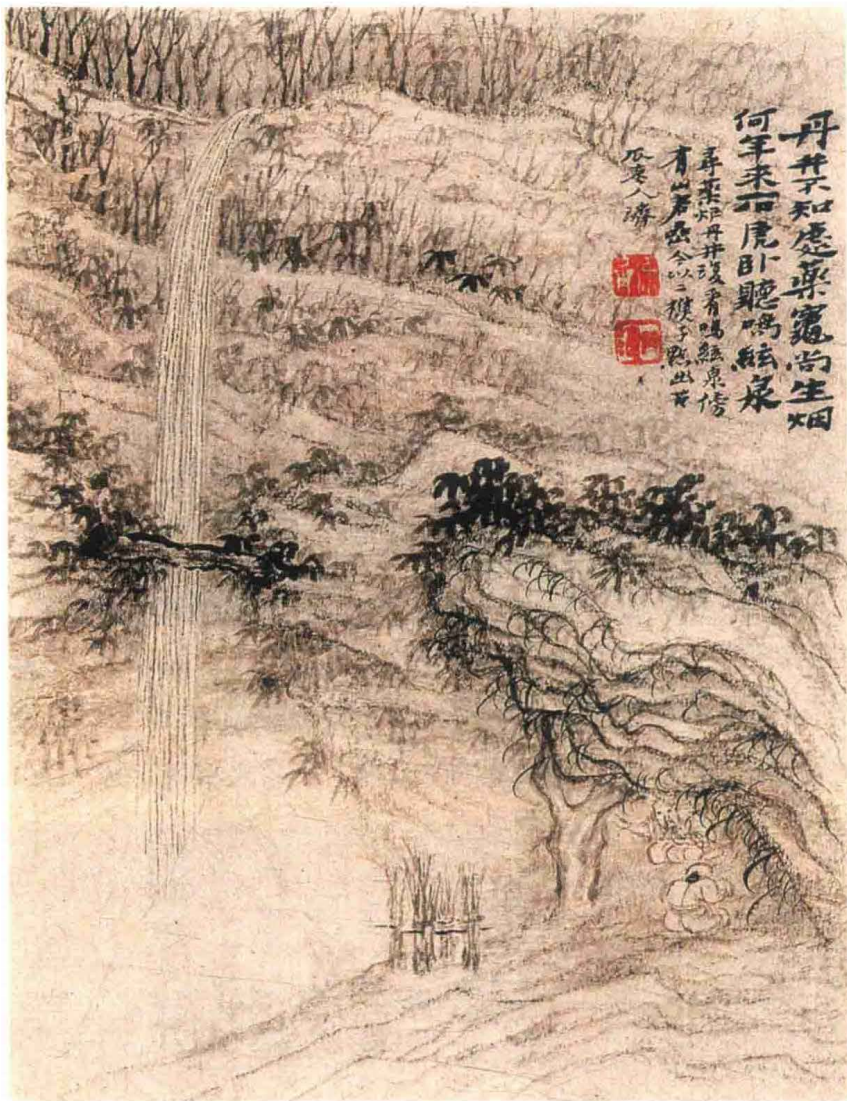 丹井不知處藥竈尚生烟
何年來石虎卧聽鳴絃泉
尋藥炉丹井復看鳴絃泉傍
有山君今以二樵子點出苦
瓜老人濟